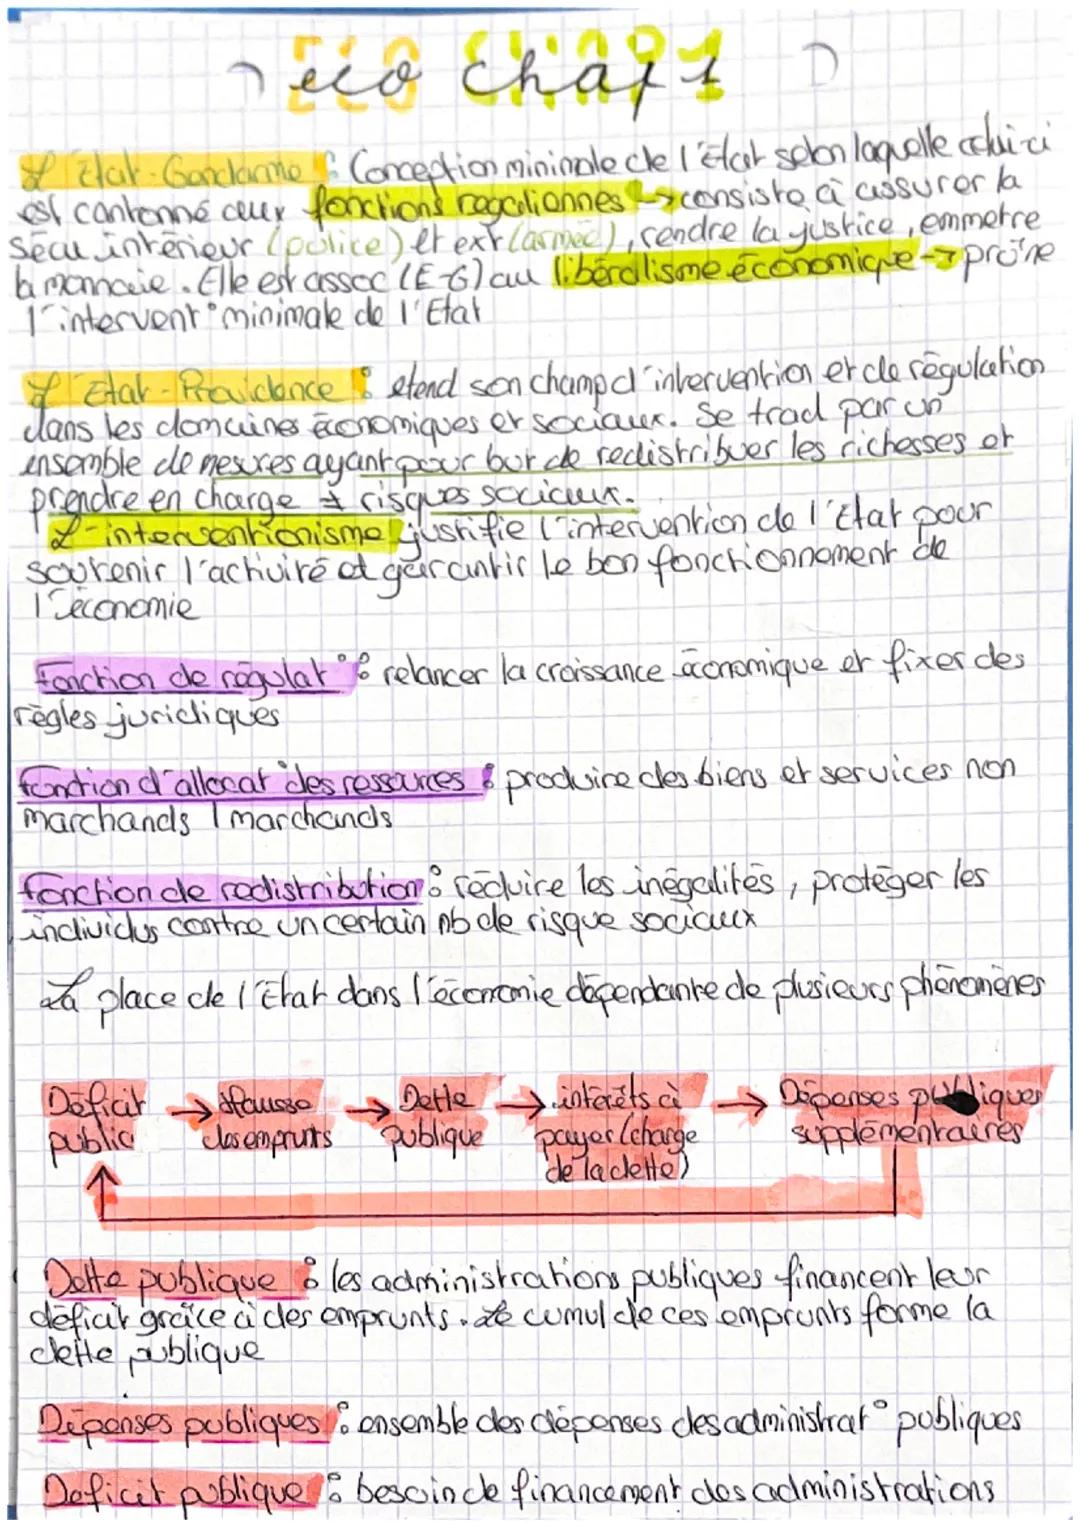 éco chap 1
L'État-Gendarme : Conception minimale de l'État selon laquelle celui-ci
est cantonné aux fonctions regaliennes → consiste à assurer la
sécu intérieur (police) et ext (armée), rendre la justice, emmetre
la monnaie. Elle est assoc (E-G) au libéralisme économique → prône
l'intervent° minimale de l'État
L'État-Providence : etend son champ d'intervention et de régulation
dans les domaines économiques et sociaux. Se trad par un
ensemble de mesures ayant pour but de redistribuer les richesses et
prendre en charge ≠ risques sociaux.
L'interventionisme justifie l'intervention de l'État pour
soutenir l'activité et garantir le bon fonctionnement de
l'économie
Fonction de régulat° : relancer la croissance économique et fixer des
règles juridiques
fonction d'allocat° des ressources : produire des biens et services non
marchands / marchands
fonction de redistribution : réduire les inégalités, protéger les
individus contre un certain nb de risque sociaux
La place de l'État dans l'économie dépendante de plusieurs phénomènes
Déficit → Hausse → Dette → intérêts à → Dépenses publiques
public des emprunts publique payer (charge supplémentaires
de la dette)
Dette publique : les administrations publiques financent leur
déficit grâce à des emprunts. Le cumul de ces emprunts forme la
dette publique
Dépenses publiques : ensemble des dépenses des administrat° publiques
Deficit publique : besoin de financement des administrations